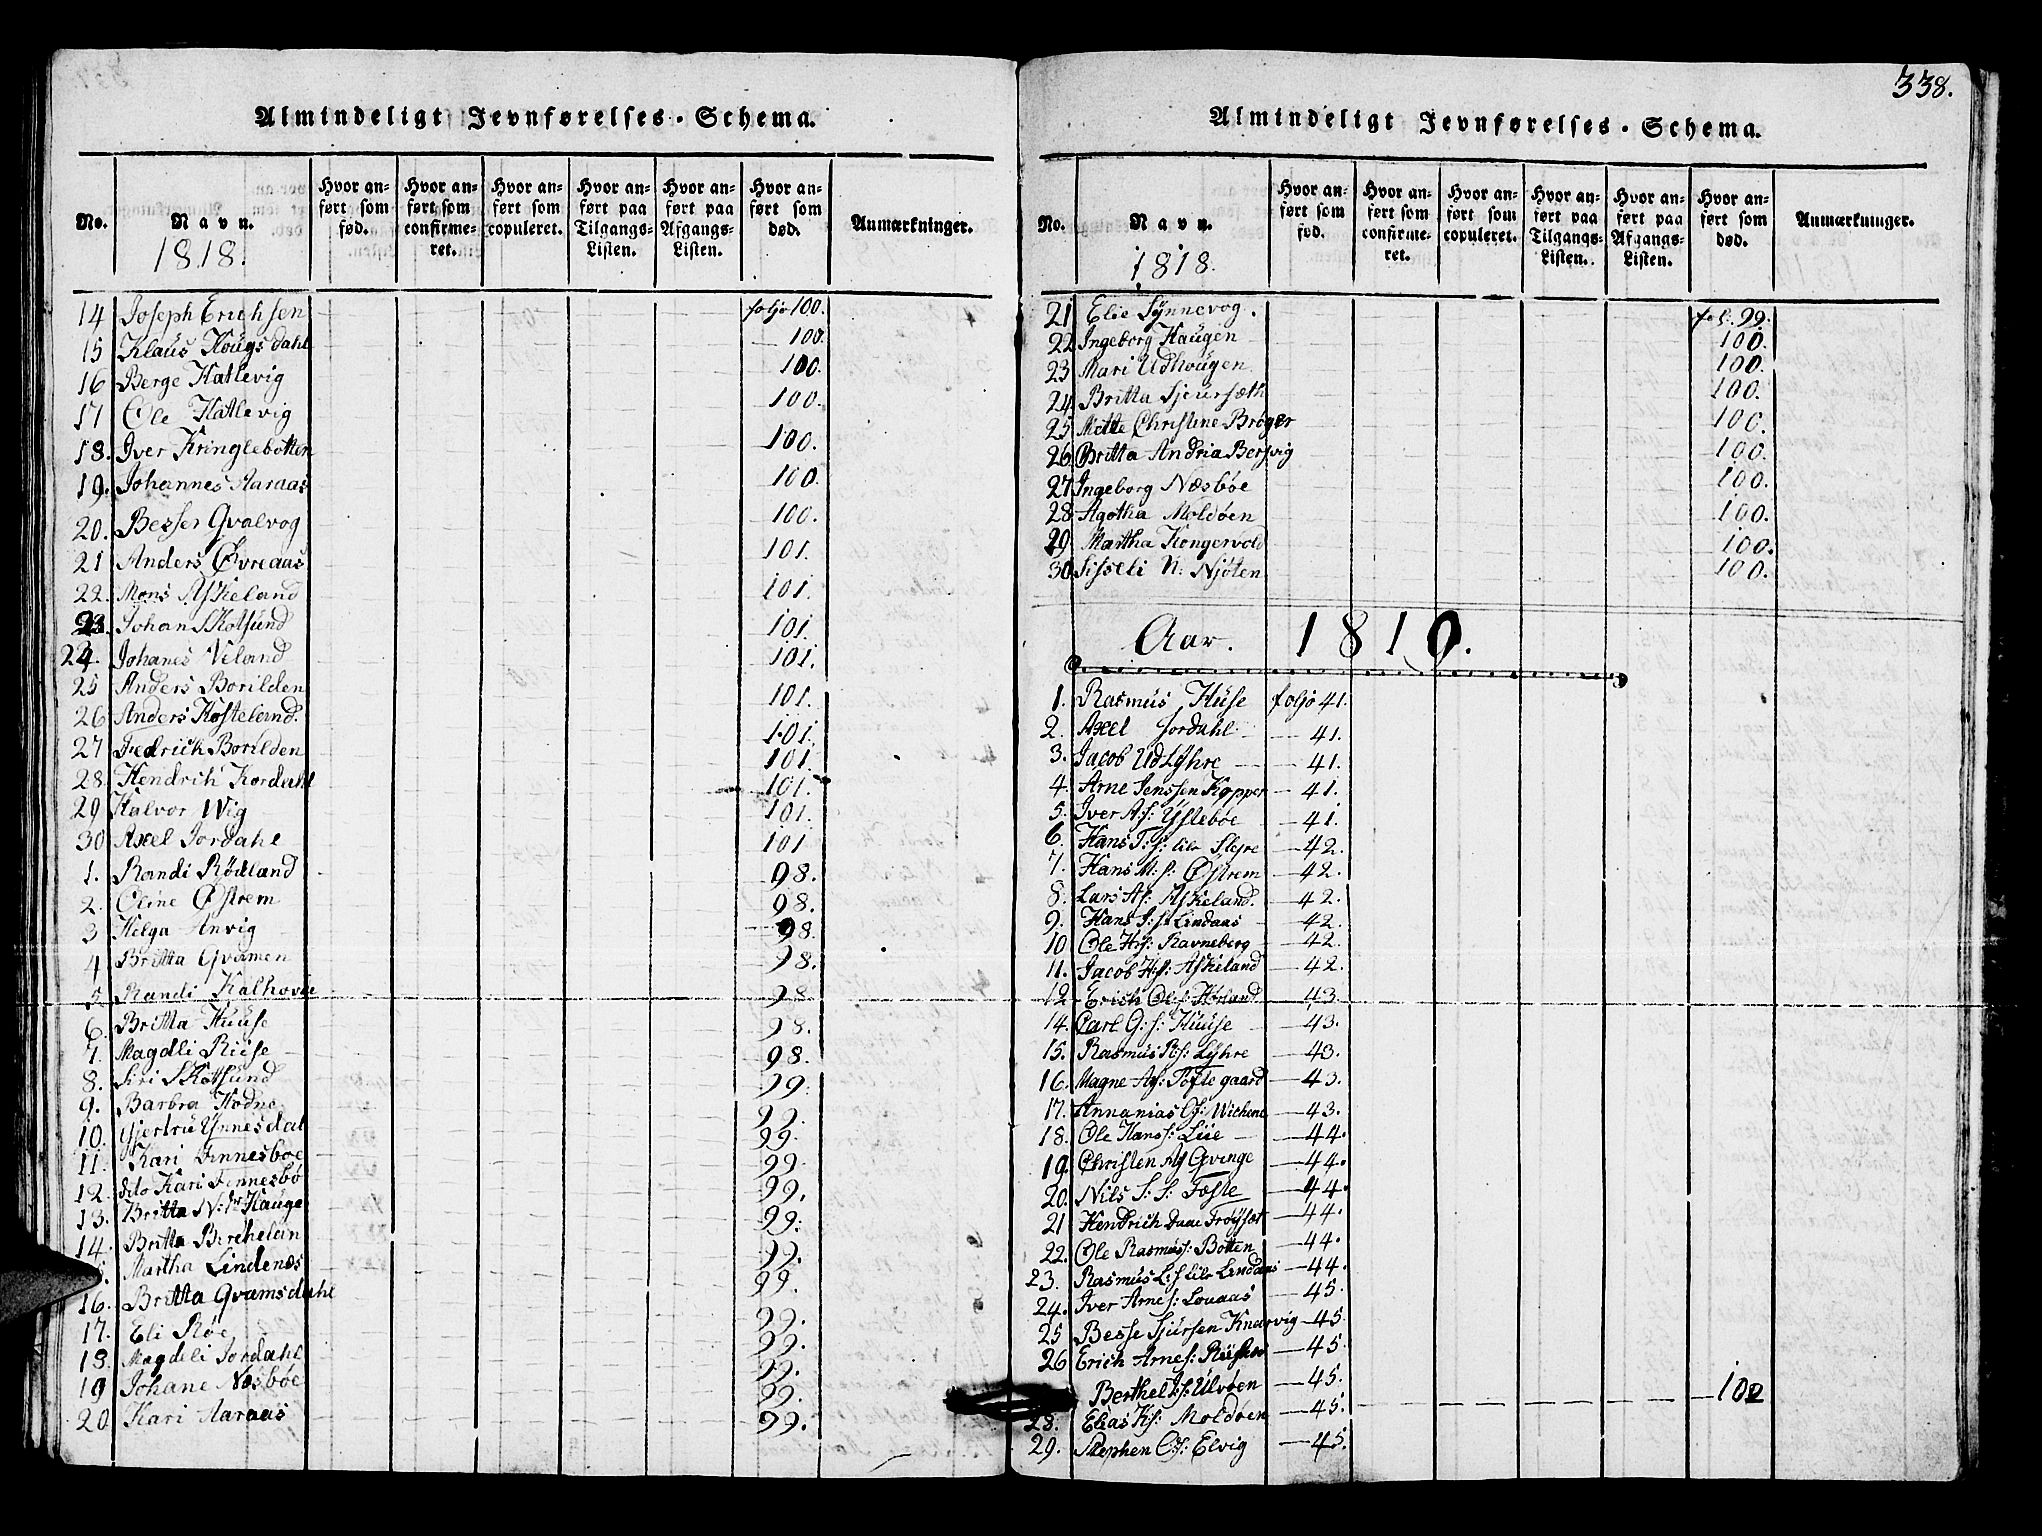 Almindeligt Jevnførelses-Schema.
No. Navn. Hvor anført som fød. Hvor anført som confirmeret. Hvor anført som copuleret. Hvor anført paa Tilgangs-Listen. Hvor anført paa Afgangs-Listen. Hvor anført som død. Anmærkninger.
1818.
14 Joseph Erichsen foljo 100.
15 Klaus Hougsdahl 100.
16 Berge Hatlevig 100.
17 Ole Hatlevig 100.
18. Iver Kringlebotten 100.
19. Johannes Aaraas 100.
20. Besser Qvalvog 100.
21 Anders Øvreaas 101.
22. Mons Askeland 101.
23. Johan Skotsund 101.
24. Johanes Veland 101.
25 Anders Borilden 101.
26 Anders Hosteland. 101.
27 Fredrich Borilden 101.
28. Hendrich Hordahl 101.
29 Halvor Wig 101.
30 Axel Jordahl 101
1. Randi Rødland 98.
2. Oline Østrem 98.
3 Helga Anvig 98.
4 Britta Qvamen 98.
5. Randi Kalhovde 98.
6. Britta Huuse 98.
7. Magdli Riise 98.
8. Siri Skotsund 99.
9. Barbra Hodne 99.
10. Gjertru Ynnesdal 99.
11. Kari Finnesboe 99.
12. dito Kari Finnesbø 99.
13. Britta N:dr Hauge 99.
14. Britta Birchelan 99.
Martha Lindenæs 99.
16. Britta Qvamsdahl 99.
17. Eli Røe 99.
18. Magdeli Jordahl 99.
19 Johane Næsbøe 99.
20. Kari Aaraas 99.
338.
Almindeligt Jevnførelses-Schema.
No. Navn. Hvor anført som fød. Hvor anført som confirmeret. Hvor anført som copuleret. Hvor anført paa Tilgangs-Listen. Hvor anført paa Afgangs-Listen. Hvor anført som død. Anmærkninger.
1818.
21 Elie Synnevog. fol: 99.
22 Ingeborg Haugen 100.
23 Mari Udhougen 100.
24. Britta Sjeursæth 100.
25 Mette Christine Brøger 100.
26 Britta Andria Bersvig 100.
27 Ingeborg Næsbøe 100.
28 Agotha Moldøen 100.
29 Martha Kongervold 100.
30 Sisseli N: Njøten 100.
Aar. 1810.
1. Rasmus Huse foljo 41.
2. Axel Jordahl 41.
3. Jacob Udlyhre 41.
4. Arne Jenssen Kopper 41.
5. Iver A:s: Yslebøe 41.
6. Hans T:s: lile Steire 42.
7. Hans M:s: Østrem 42.
8. Lars As: Askeland. 42.
9. Hans J:s: Lindaas 42.
10 Ole Hs: Ravneberg 42.
11. Jacob H:s: Askeland 42.
12 Erich Ol:s: Hørland 43.
14. Carl G:s: Huuse 43.
15. Rasmus R:s: Lyhre 43.
16. Magne As: Toftegaard 43.
17. Annanias Os: Wichene 43.
18. Ole Hans: Liie 44.
19. Christen As Qvinge 44.
20. Nils S:s: Tæste 44.
21 Hendrich Daae Frøyset 44.
22. Ole Rasmus: Botten 44.
23. Rasmus L:s lile Lindaas 44.
24. Iver Arnes: Louaas 45.
25 Besse Sjursen Knarvig 45.
26 Erich Arnes: 45.
Berthel J:s: Ulvøen 45. 102
28. Elias Ks: Moldøen 45.
29. Stephen Os: Elvig 45.